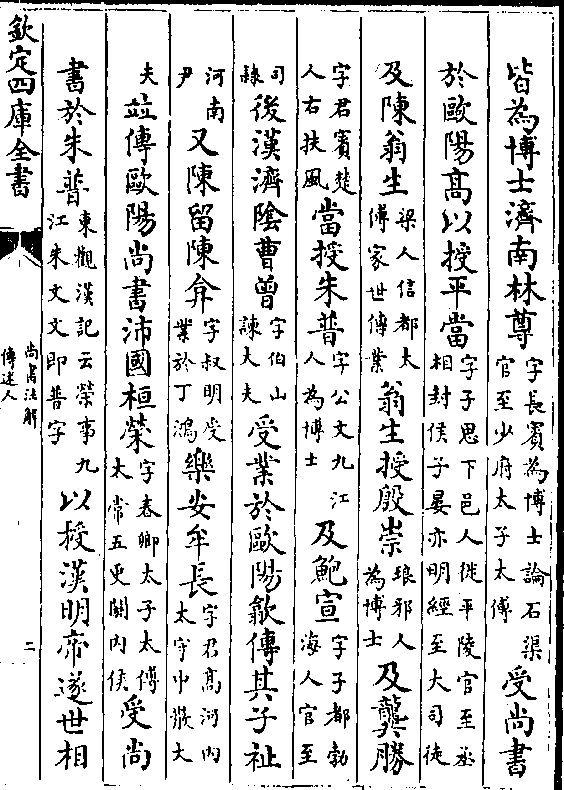 皆為博士濟南林尊字長賓為博士論石渠官至少府太子太傅受尚書
於歐陽高以授平當字子思下邑人徙平陵官至丞相封侯子晏亦明經至大司徒
及陳翁生梁人信都太傅家世傳業翁生授殷崇琅邪人為博士及龔勝
字君賓楚人右扶風當授朱普字公文九江人為博士及鮑宣字子都勃海人官至
司隸後漢濟陰曹曾字伯山諫大夫受業於歐陽歙傳其子祉
河南尹又陳留陳弇字叔明受業於丁鴻樂安牟長字君高河內太守中散大
夫並傳歐陽尚書沛國桓榮字春卿太子太傅太常五更關內侯受尚
書於朱普東觀漢記云榮事九江朱文文即普字以授漢明帝遂世相
欽定四庫全書
尚書注解傳述人
二